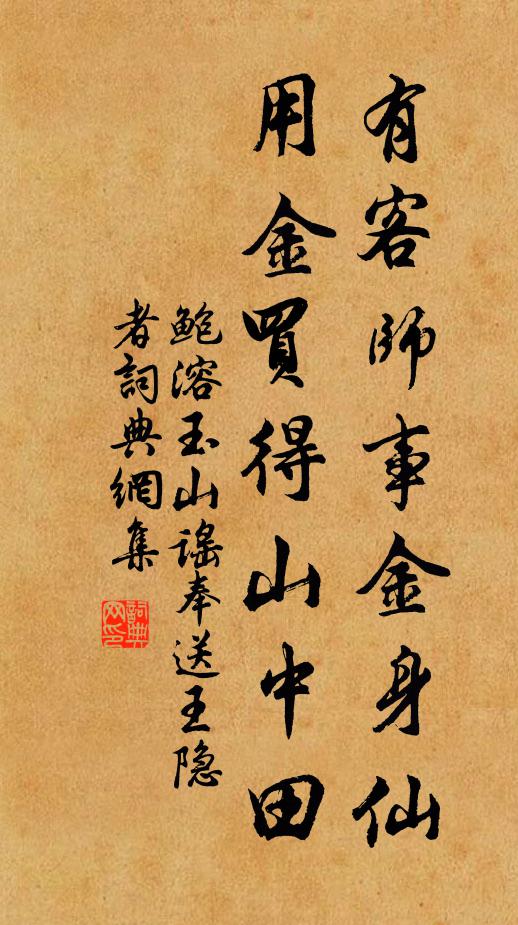 有客師事金身仙
用金買得山中田
鲍溶玉山謡奉送王隐
者詞典網集
詞典网印